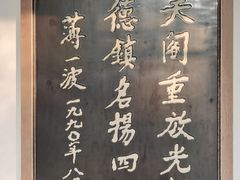 天阁重放光
德镇名扬四
薄一波一九九〇年八